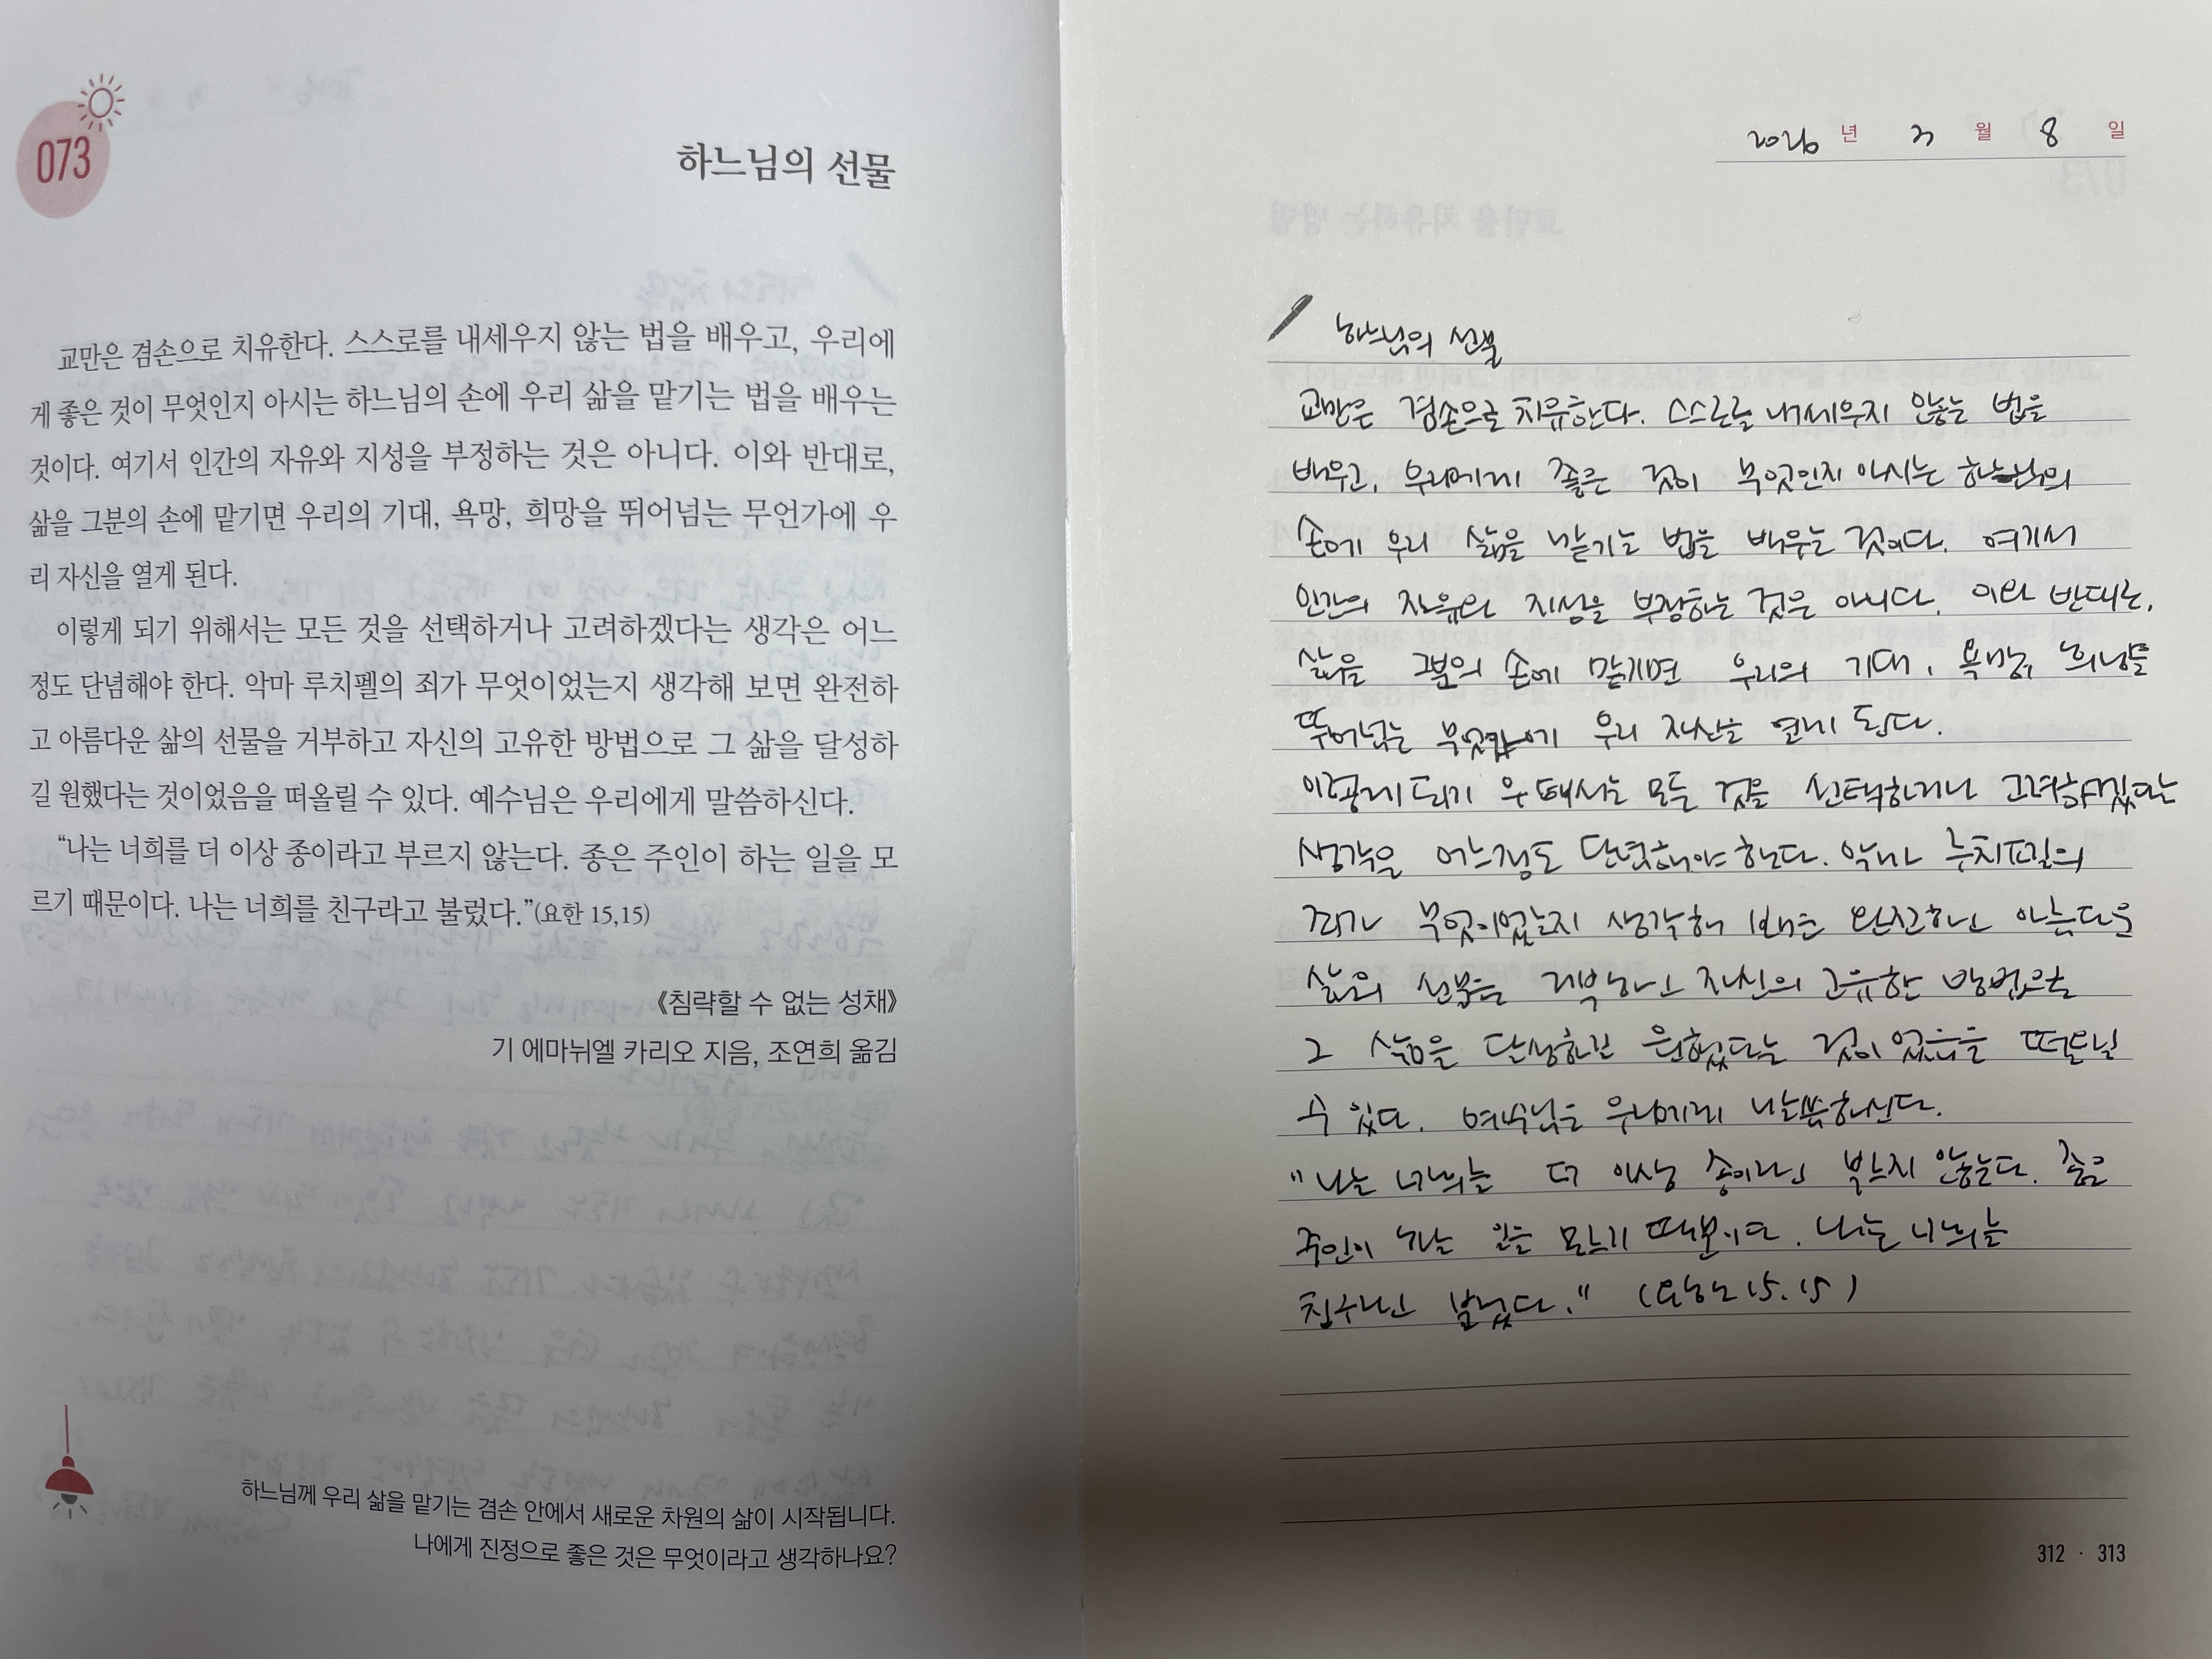 073
하느님의 선물
교만은 겸손으로 치유한다. 스스로를 내세우지 않는 법을 배우고, 우리에
게 좋은 것이 무엇인지 아시는 하느님의 손에 우리 삶을 맡기는 법을 배우는
것이다. 여기서 인간의 자유와 지성을 부정하는 것은 아니다. 이와 반대로,
삶을 그분의 손에 맡기면 우리의 기대, 욕망, 희망을 뛰어넘는 무언가에 우
리 자신을 열게 된다.
이렇게 되기 위해서는 모든 것을 선택하거나 고려하겠다는 생각은 어느
정도 단념해야 한다. 악마 루치펠의 죄가 무엇이었는지 생각해 보면 완전하
고 아름다운 삶의 선물을 거부하고 자신의 고유한 방법으로 그 삶을 달성하
길 원했다는 것이었음을 떠올릴 수 있다. 예수님은 우리에게 말씀하신다.
“나는 너희를 더 이상 종이라고 부르지 않는다. 종은 주인이 하는 일을 모
르기 때문이다. 나는 너희를 친구라고 불렀다.”(요한 15,15)
《침략할 수 없는 성채》
기 에마뉘엘 카리오 지음, 조연희 옮김
하느님께 우리 삶을 맡기는 겸손 안에서 새로운 차원의 삶이 시작됩니다.
나에게 진정으로 좋은 것은 무엇이라고 생각하나요?
2026 년 3 월 8 일
하느님의 선물
교만은 겸손으로 치유한다. 스스로를 내세우지 않는 법을
배우고, 우리에게 좋은 것이 무엇인지 아시는 하느님의
손에 우리 삶을 맡기는 법을 배우는 것이다. 여기서
인간의 자유와 지성을 부정하는 것은 아니다. 이와 반대로,
삶을 그분의 손에 맡기면 우리의 기대, 욕망, 희망을
뛰어넘는 무언가에 우리 자신을 열게 된다.
이렇게 되기 위해서는 모든 것을 선택하거나 고려하겠다는
생각은 어느정도 단념해야 한다. 악마 루치펠의
죄가 무엇이었는지 생각해 보면 완전하고 아름다운
삶의 선물을 거부하고 자신의 고유한 방법으로
그 삶을 달성하길 원했다는 것이었음을 떠올릴
수 있다. 예수님은 우리에게 말씀하신다.
"나는 너희를 더 이상 종이라고 부르지 않는다. 종은
주인이 하는 일을 모르기 때문이다. 나는 너희를
친구라고 불렀다." (요한 15.15)
312 · 313